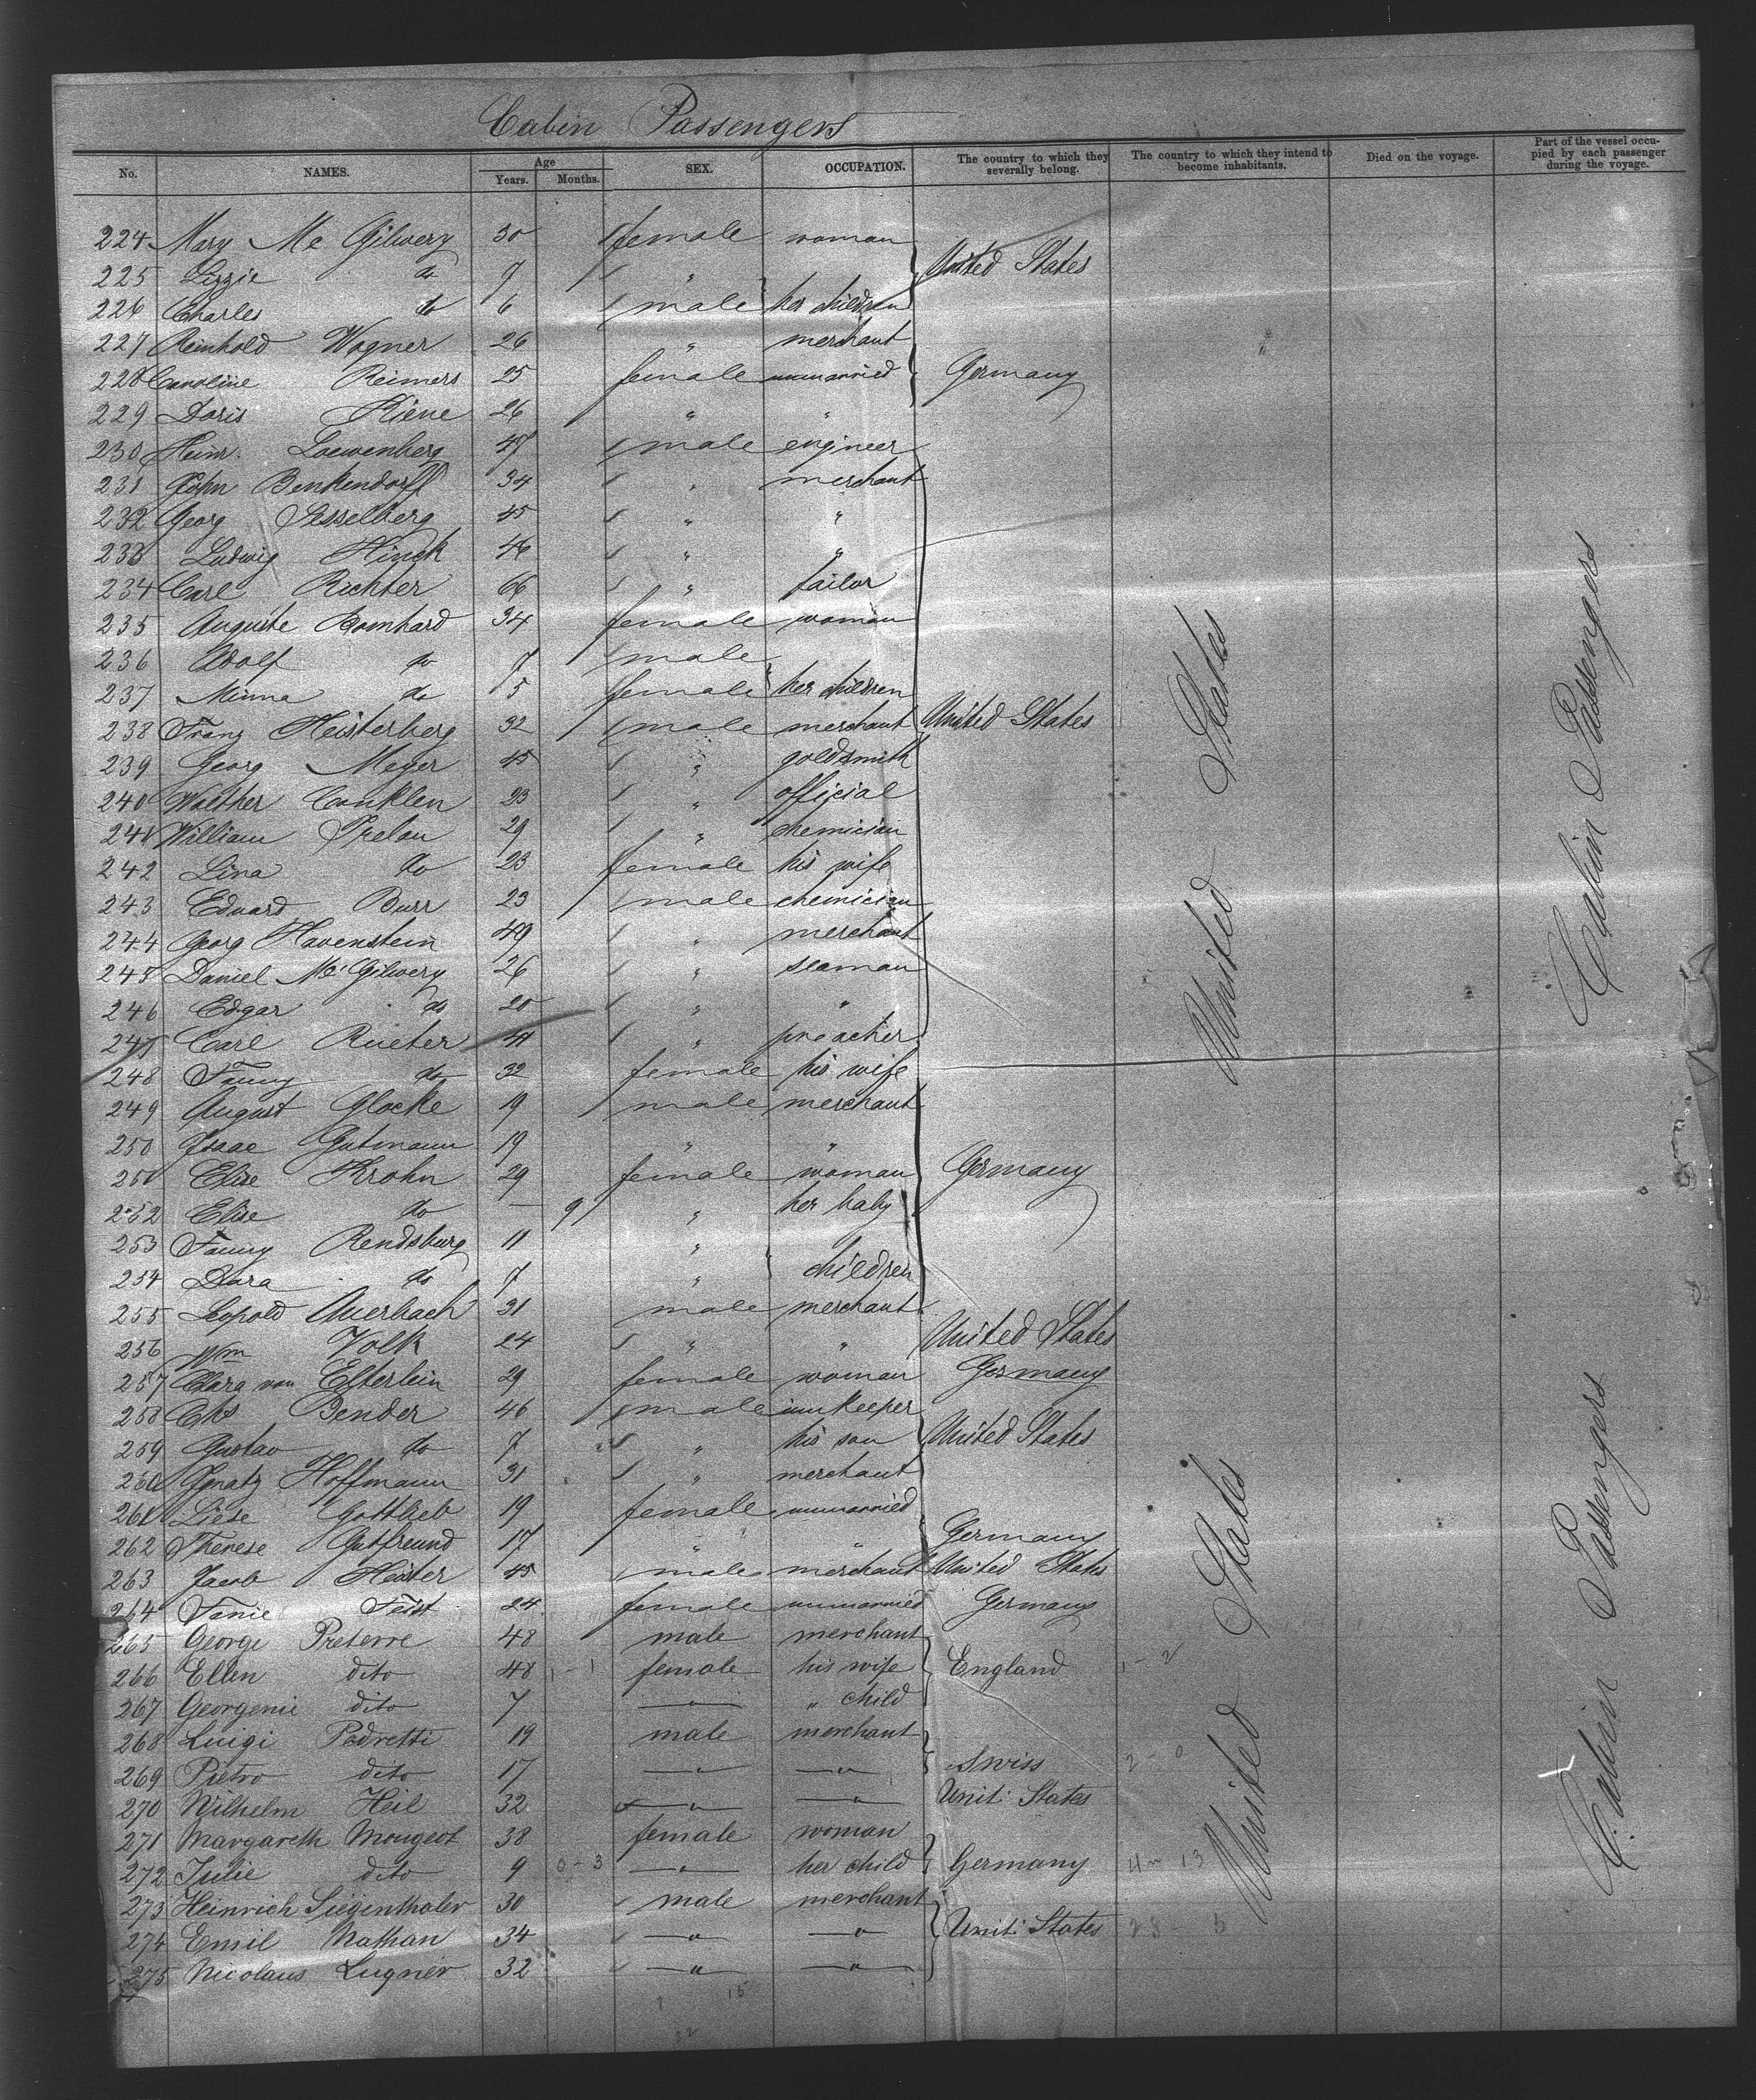 Cabin Passengers
No. NAMES. Age Years. Months. SEX. OCCUPATION. The country to which they severally belong. The country to which they intend to become inhabitants. Died on the voyage. Part of the vessel occupied by each passenger during the voyage.
224 Mary Mc Gilvery 30 female woman
225 Lizzie do 7 " United States
226 Charles do 6 male her children
227 Reinhold Wagner 26 " merchant
228 Caroline Reimers 25 female unmarried Germany
229 Doris Kiene 26 " "
230 Heinr. Loewenberg 47 male engineer
231 John Benkendorff 34 " merchant
232 Georg Sesselberg 45 " "
233 Ludwig Hinck 46 " "
234 Carl Richter 66 " tailor
235 Auguste Bomhard 34 female woman
236 Adolf do 7 male
237 Minna do 5 female her children
238 Franz Heisterberg 32 male merchant United States
239 Georg Meyer 45 " goldsmith
240 Walther Conklen 23 " official
241 William Prelau 29 " chemician
242 Lina do 23 female his wife
243 Eduard Burr 23 male chemician
244 Georg Havenstein 49 " merchant
245 Daniel Mc Gilvery 26 " seaman
246 Edgar do 20 " "
247 Carl Rueter 41 " preacher
248 Fanny do 32 female his wife
249 August Glocke 19 male merchant
250 Isaac Gutmann 19 " "
251 Elise Krohn 29 female woman Germany
252 Elise do — 9 " her baby
253 Fanny Rendsburg 11 "
254 Dora do 7 " children
255 Leopold Auerbach 31 male merchant
256 Wm Volk 24 " " United States
257 Clara von Elterlein 29 female woman Germany
258 Chs Bender 46 male innkeeper
259 Gustav do 7 " his son United States
260 Ignatz Hoffmann 31 " merchant
261 Liese Gottlieb 19 female unmarried
262 Therese Gutfreund 17 " " Germany
263 Jacob Heister 45 male merchant United States
264 Fanie Feist 24 female unmarried Germany
265 George Preterre 48 male merchant
266 Ellen dito 48 1 - 1 female his wife England 1 - 2
267 Georgenie dito 7 " " child
268 Luigi Padretti 19 male merchant
269 Pietro dito 17 " " Swiss 2 - 0
270 Wilhelm Heil 32 " " Unit: States
271 Margareth Mougeot 38 female woman
272 Julie dito 9 0 - 3 " her child Germany 4 - 13
273 Heinrich Siegenthaler 30 male merchant
274 Emil Nathan 34 " " Unit: States 28 - 5
275 Nicolaus Lugner 32 " "
7 15
22
United States
Cabin Passengers
United States
Cabin Passengers